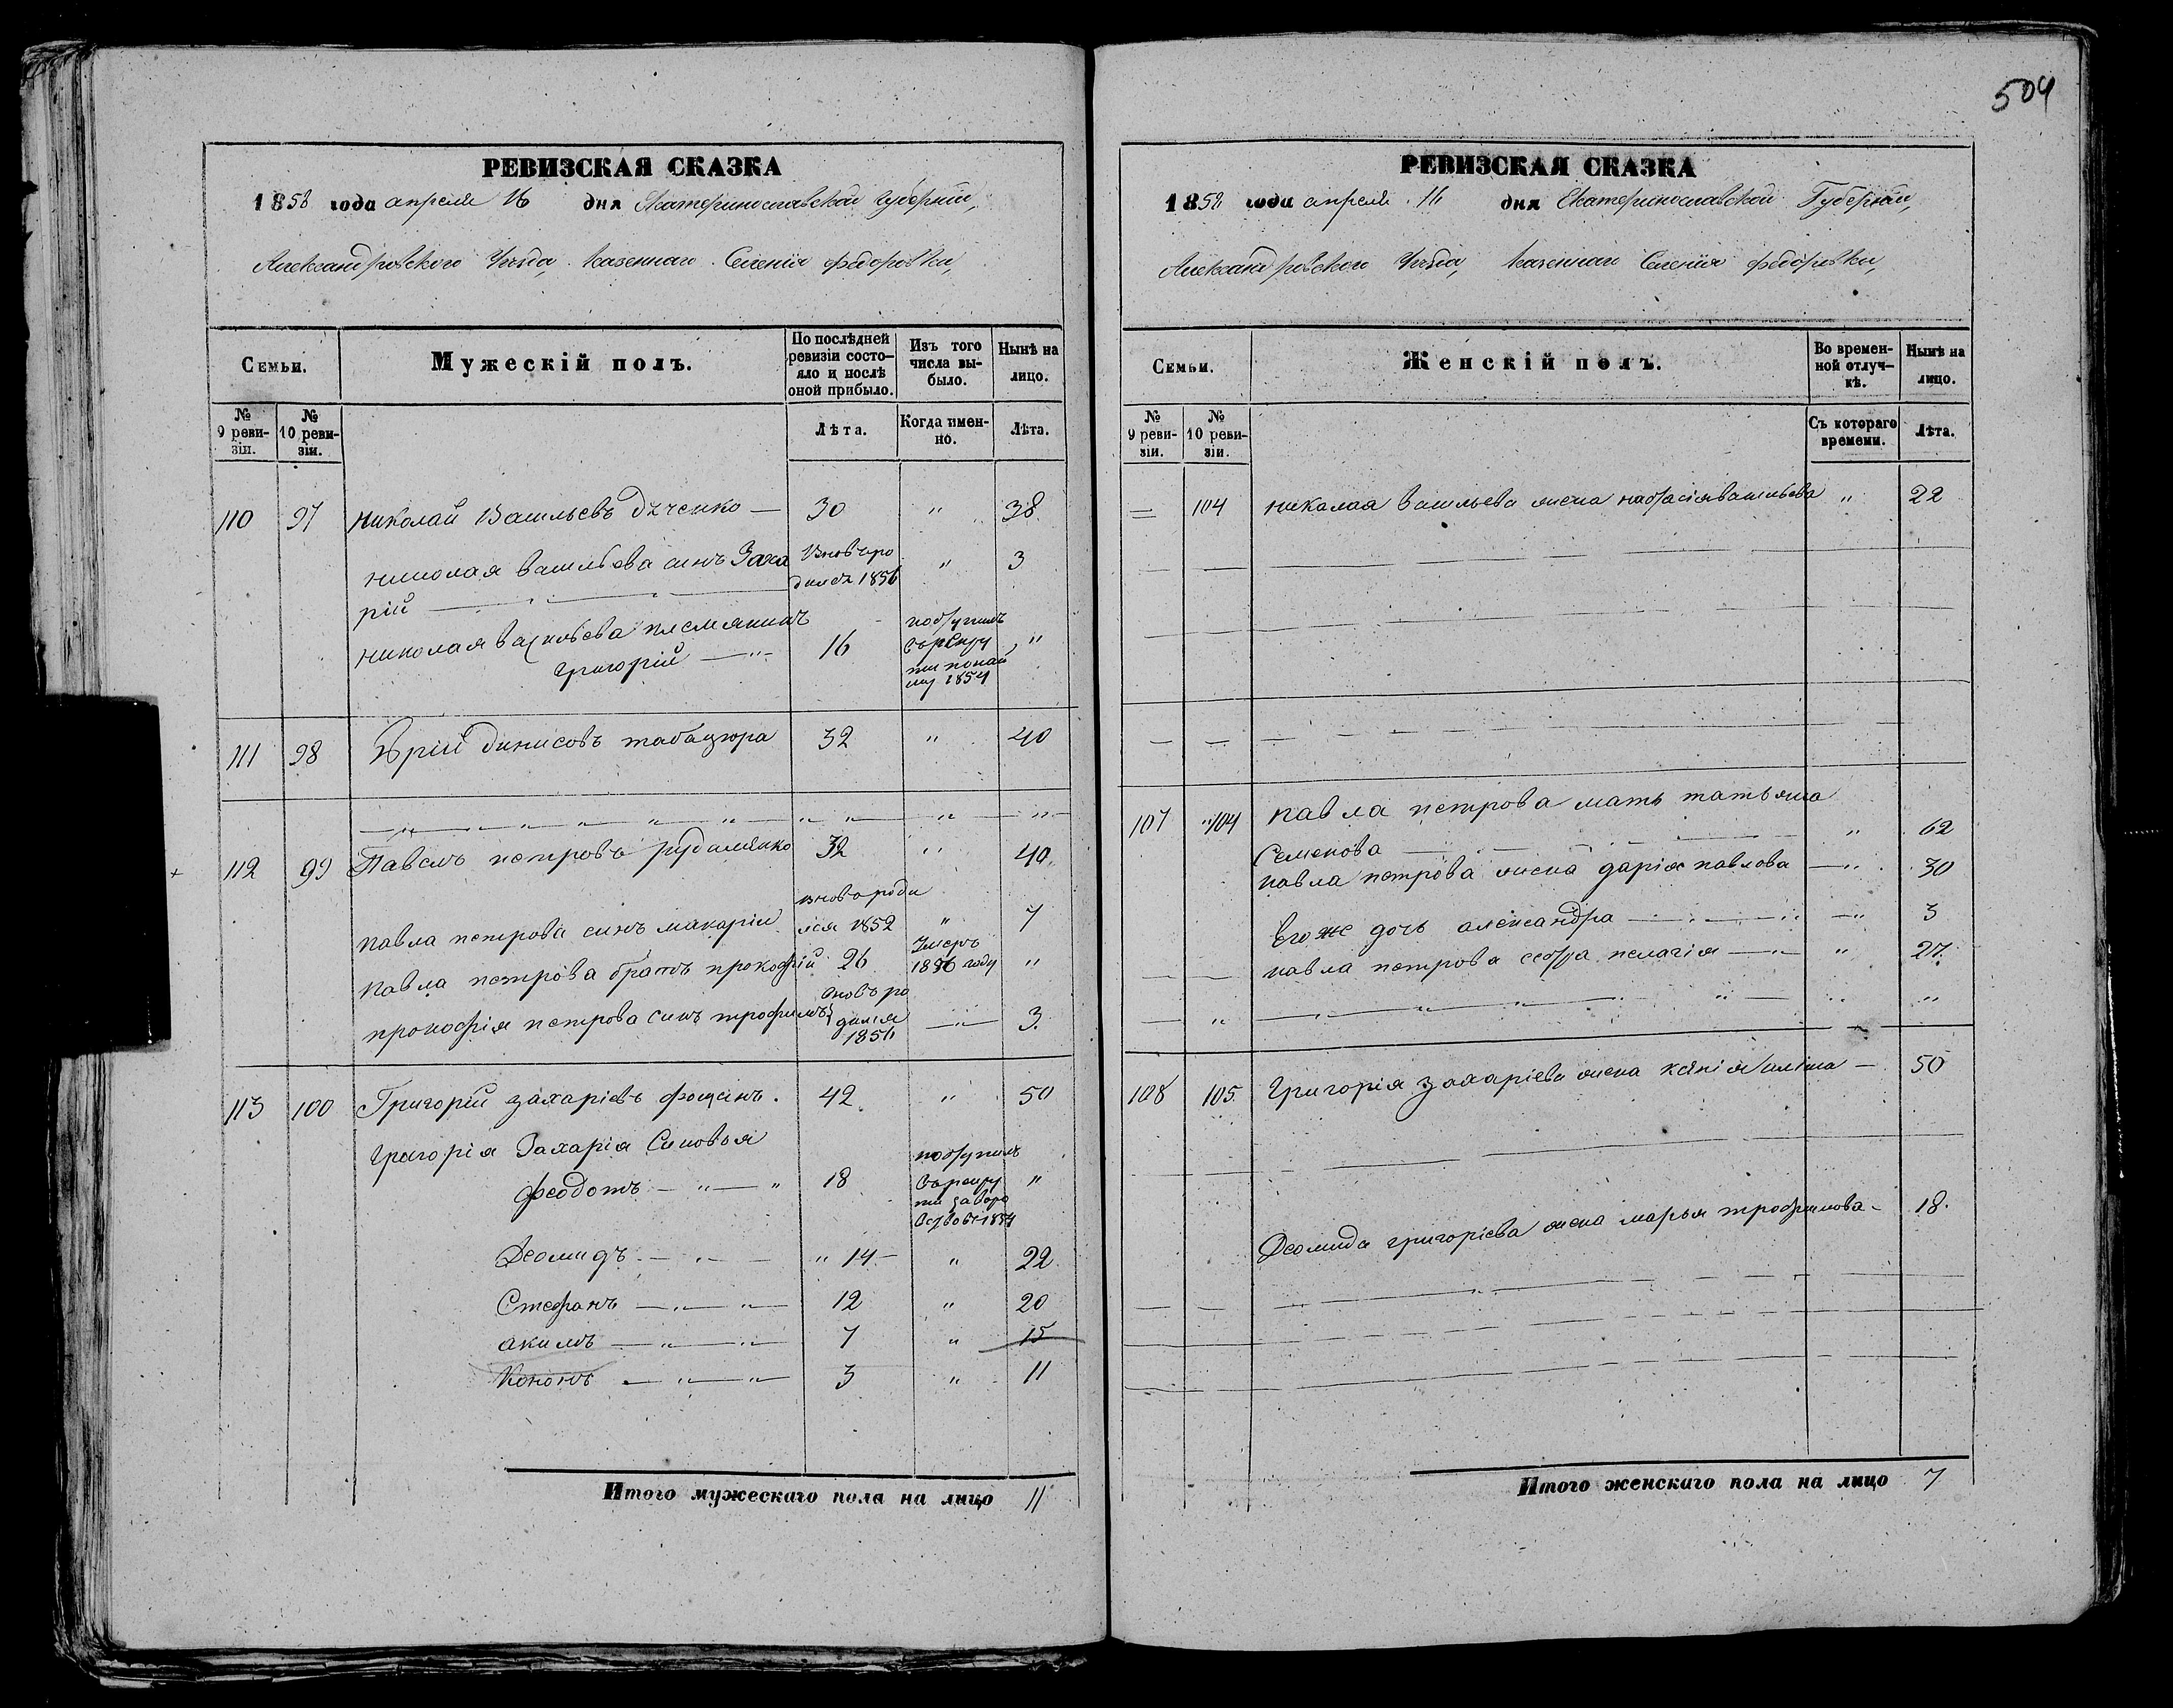 504
РЕВИЗСКАЯ СКАЗКА
1858 года апреля 16 дня Екатеринославской Губерніи,
Александровского Уезда, Казеннаго Селенія Федоровки,
Семьи.
Мужескій полъ.
По послѣдней ревизіи состояло и послѣ оной прибыло.
Изъ того числа выбыло.
Нынѣ на лицо.
№ 9 ревизіи.
№ 10 ревизіи.
Лѣта.
Когда именно.
Лѣта.
110 97 Николай Васильевъ Дѣченко — 30 " 38
Николая Васильева синъ Заха Вновь ро " 3
рій дился 1856
Николая Васильева племянникъ
Григорій — " 16 1854 "
111 98 Юрій Динисовъ 32 " 40
112 99 Павелъ петровъ 32 " 40
вново роди
Павла петрова синъ макарій лся 1852 " 7
Павла петрова братъ прокофій 26 Умеръ 1856 году "
прокофія петрова синъ трофимъ вновъ ро дился 1856 — " — 3
113 100 Григорій захаріевъ 42 " 50
Григорія Захарія Синовья
феодотъ — " — " 18 1854 "
Деомидъ — " — " 14 — " 22
Стефанъ — " — " — 12 " 20
акимъ — " — " — 7 " 15
Кононъ — " — " — 3 " 11
Итого мужескаго пола на лицо 11
РЕВИЗСКАЯ СКАЗКА
1858 года апреля 16 дня Екатеринославской Губерніи,
Александровского Уезда, Казеннаго Селенія Федоровки,
Семьи.
Женскій полъ.
Во временной отлучкѣ.
Нынѣ на лицо.
№ 9 ревизіи.
№ 10 ревизіи.
Съ котораго времени.
Лѣта.
— 104 николая васильева жена настасія васильева " 22
107 "104 павла петрова мать татьяна
Семенова " 62
павла петрова жена дарія павлова — " 30
Егоже дочь александра — " 3
павла петрова сестра пелагія — " — " 27
108 105 Григорія захаріева жена — 50
Деомида григоріева жена марья трофимова — 18
Итого женскаго пола на лицо 7